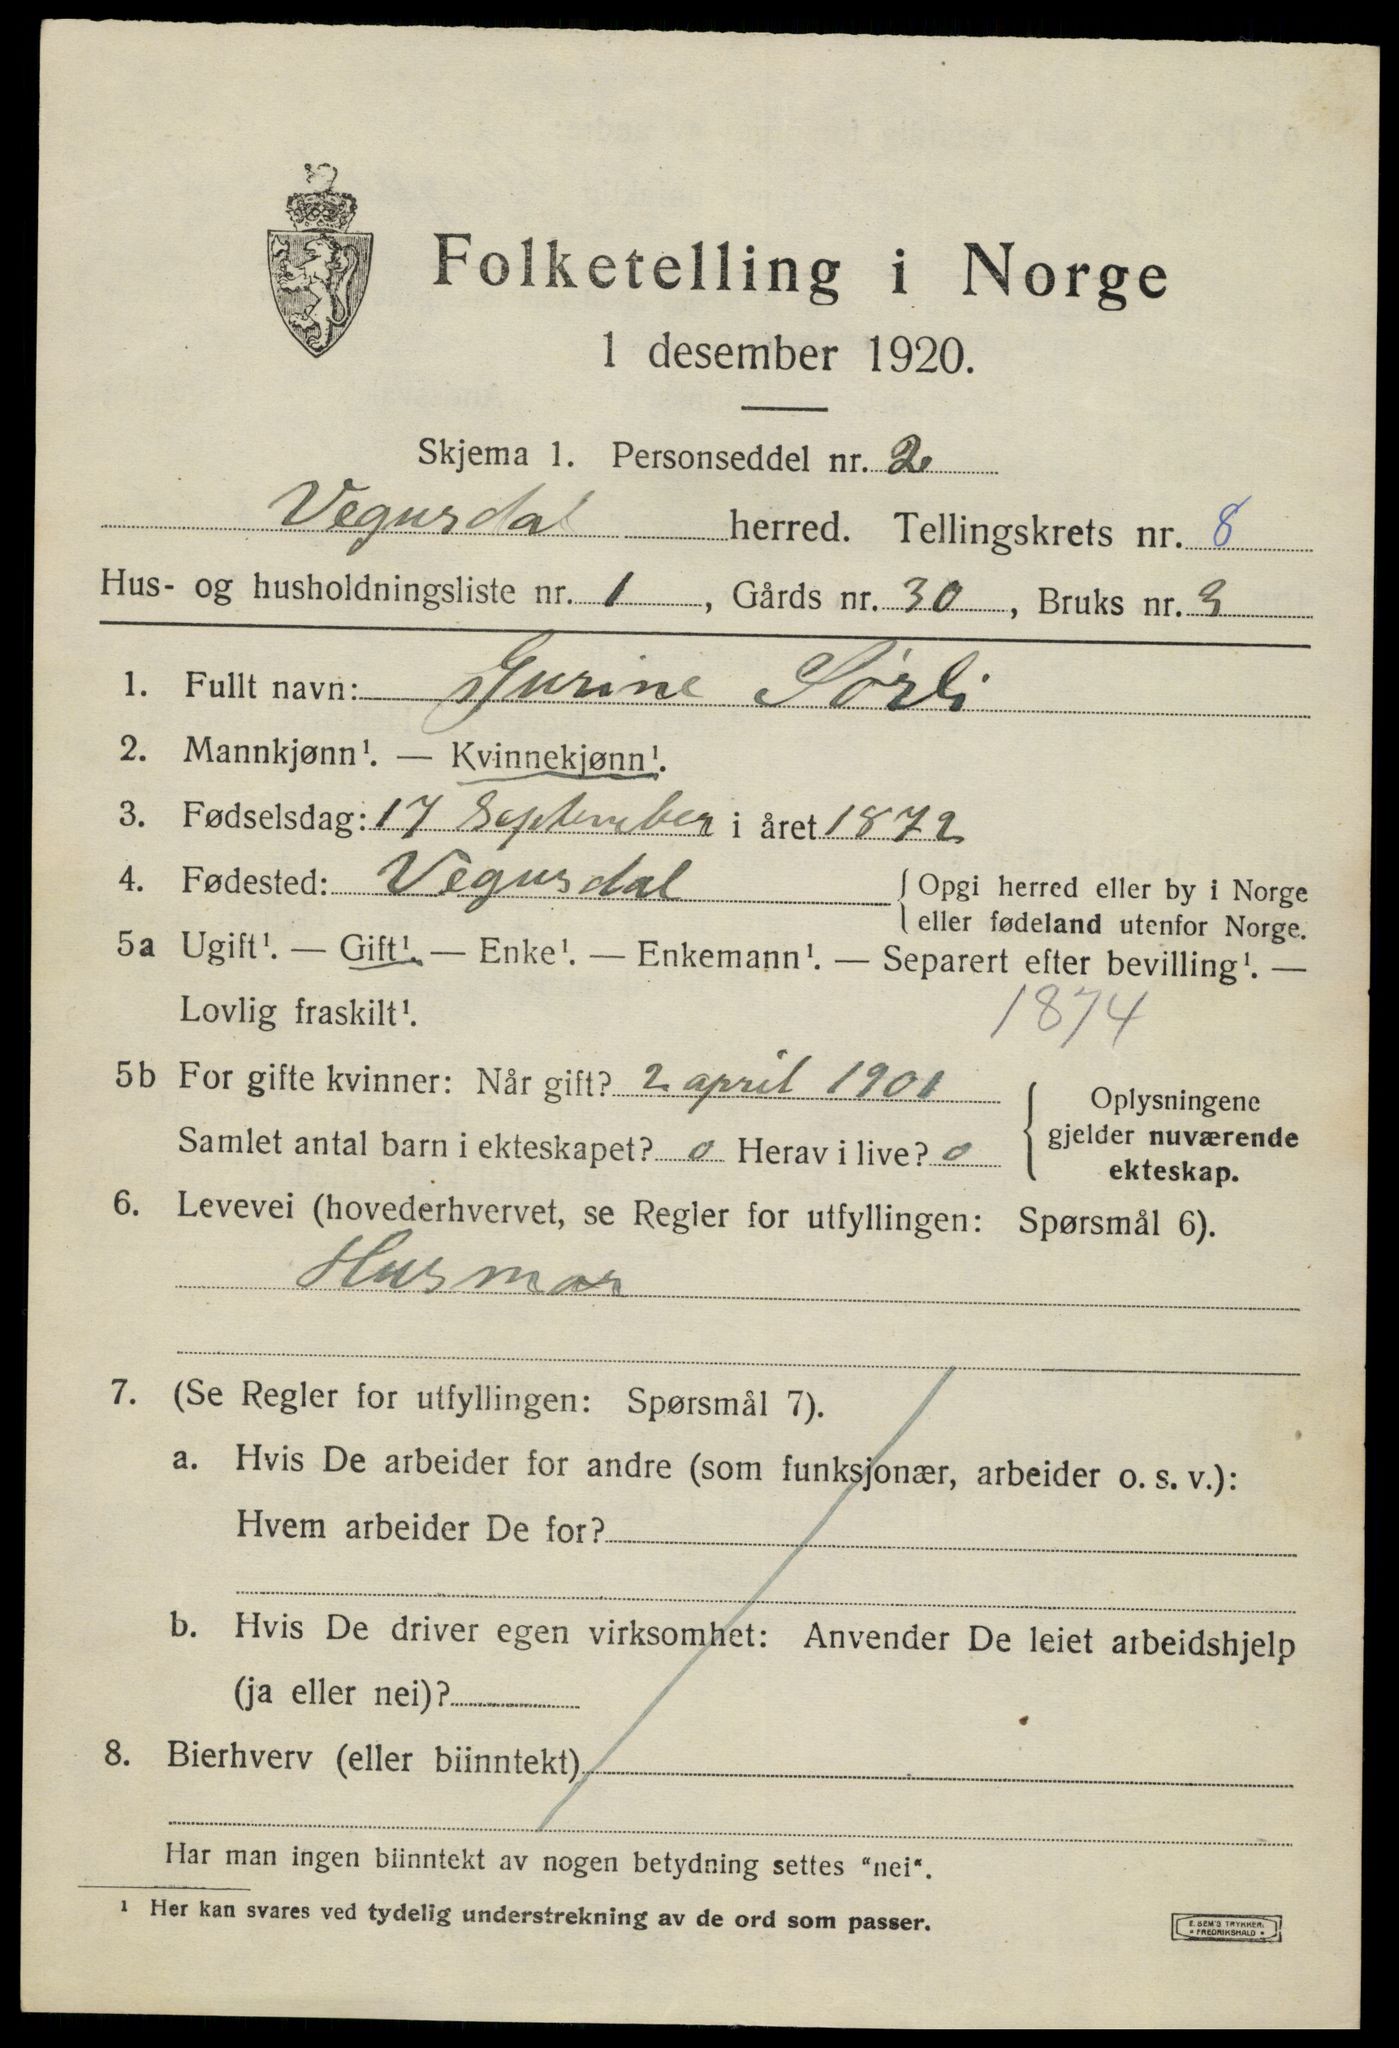 Folketelling i Norge
1 desember 1920.
Skjema 1. Personseddel nr. 2
Vegusdal herred. Tellingskrets nr. 8
Hus- og husholdningsliste nr. 1, Gårds nr. 30, Bruks nr. 3
1. Fullt navn: Gurine Sørli
2. Mannkjønn¹. — Kvinnekjønn¹.
3. Fødselsdag: 17 September i året 1872
4. Fødested: Vegusdal { Opgi herred eller by i Norge
eller fødeland utenfor Norge.
5a Ugift¹. — Gift¹. — Enke¹. — Enkemann¹. — Separert efter bevilling¹. —
Lovlig fraskilt¹. 1874
5b For gifte kvinner: Når gift? 2 april 1901
Samlet antal barn i ekteskapet? 0 Herav i live? 0
{ Oplysningene
gjelder nuværende
ekteskap.
6. Levevei (hovederhvervet, se Regler for utfyllingen: Spørsmål 6).
Husmor
7. (Se Regler for utfyllingen: Spørsmål 7).
a. Hvis De arbeider for andre (som funksjonær, arbeider o. s. v.):
Hvem arbeider De for?
b. Hvis De driver egen virksomhet: Anvender De leiet arbeidshjelp
(ja eller nei)?
8. Bierhverv (eller biinntekt)
Har man ingen biinntekt av nogen betydning settes "nei".
¹ Her kan svares ved tydelig understrekning av de ord som passer.
E. SEM'S TRYKKERI
* FREDRIKSHALD *